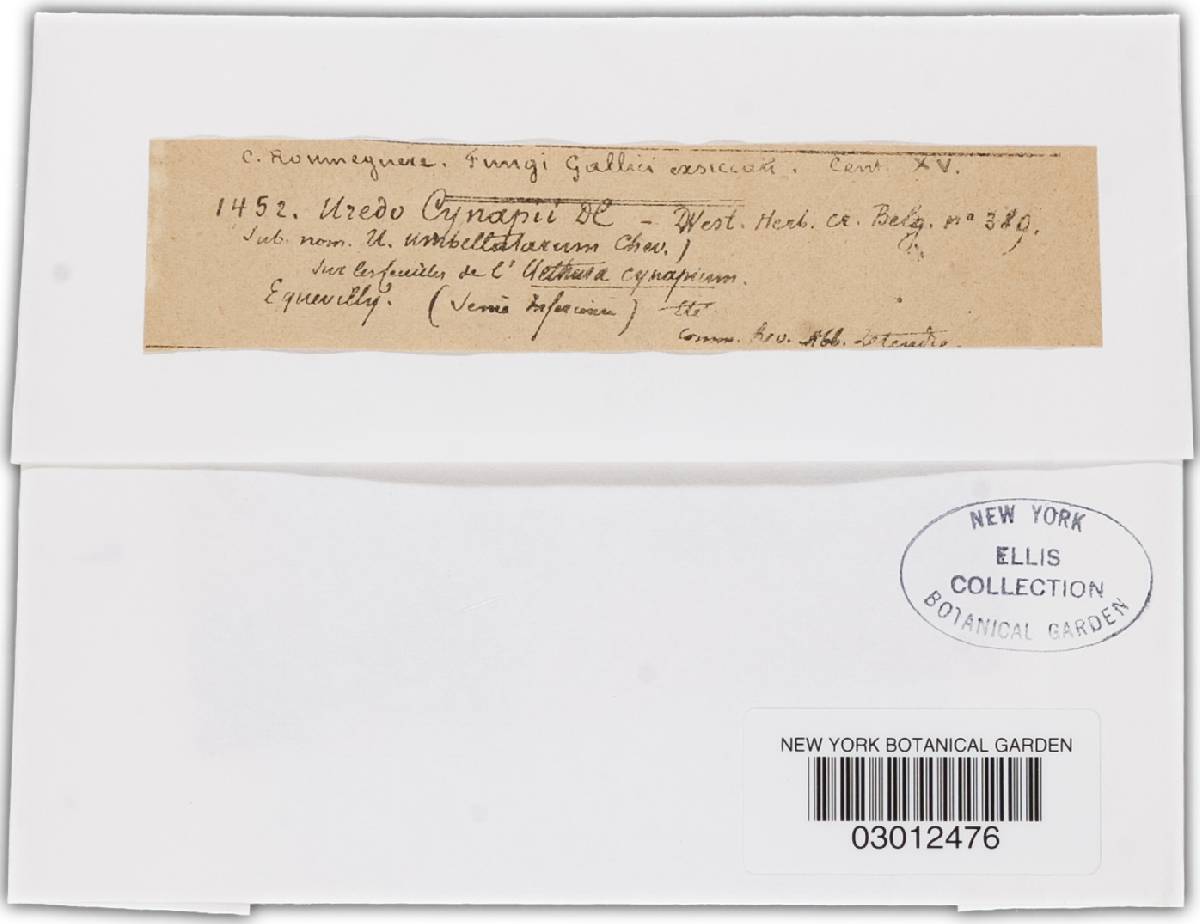 C. Roumeguere. Fungi Gallici exsiccati. Cent. XV.
1452. Uredo Cynapii DC – West. Herb. cr. Belg. nº 389.
Sub. nom. U. umbellatarum Chev.)
Sur les feuilles de l' Aethusa cynapium.
Equevilly. (Seine Inferieure) Eté
comm. Rev. Abb. Letendre.
NEW YORK
ELLIS
COLLECTION
BOTANICAL GARDEN
NEW YORK BOTANICAL GARDEN
03012476